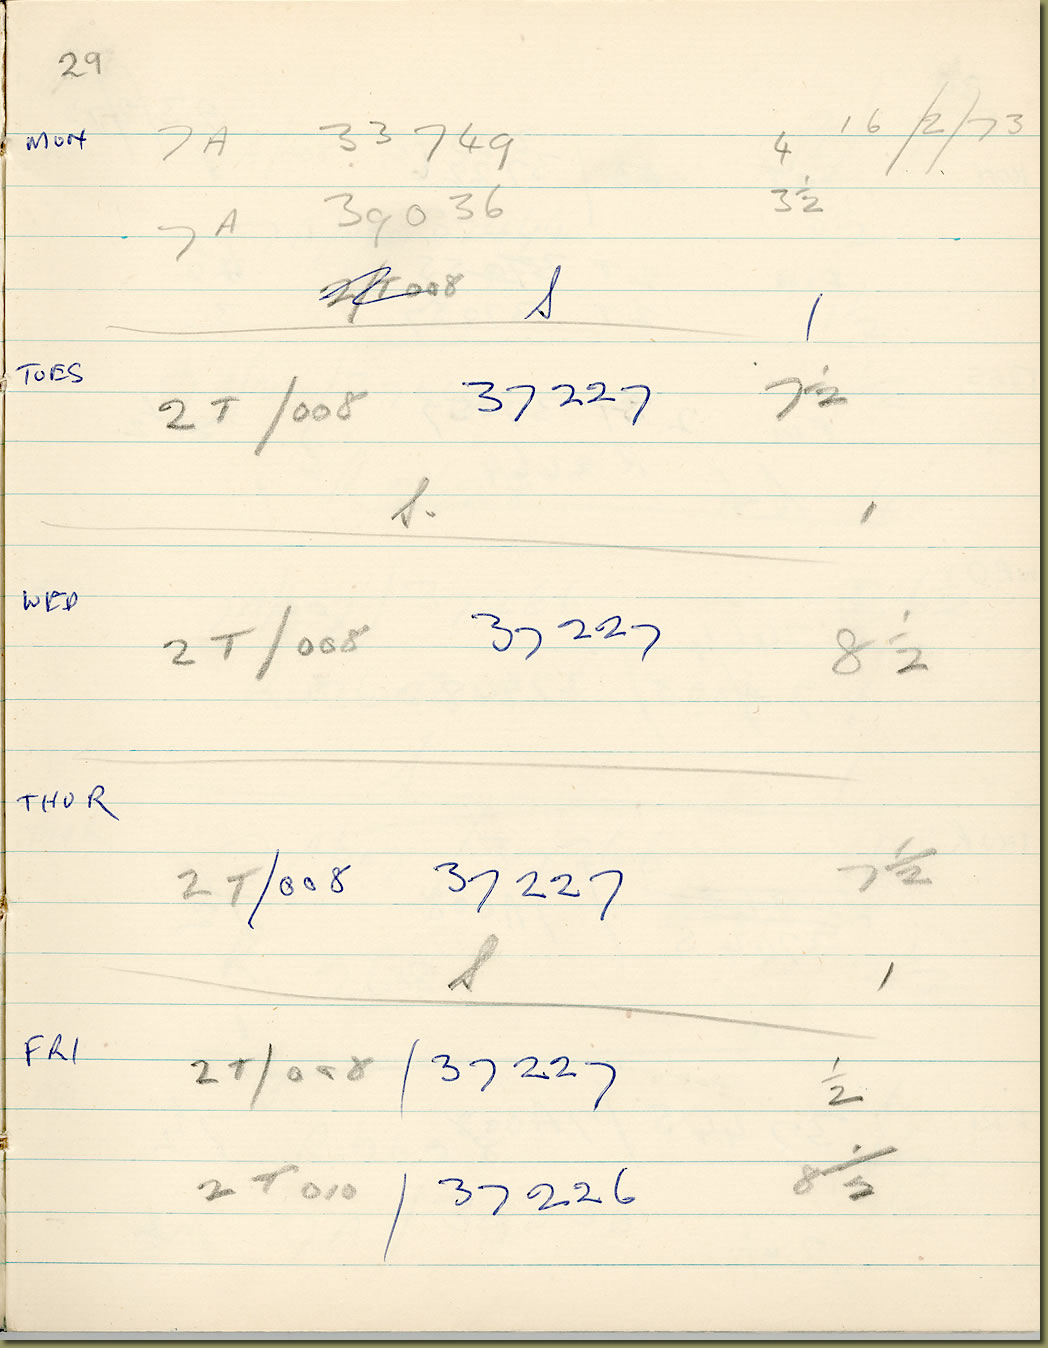 29
MON 7A 33749 4 16/2/73
7A 39036 3½
2/T008 S 1
TUES
2T/008 37227 7½
S. 1
WED
2T/008 37227 8½
THUR
2T/008 37227 7½
S 1
FRI
2T/008/37227 ½
2T010/37226 8½